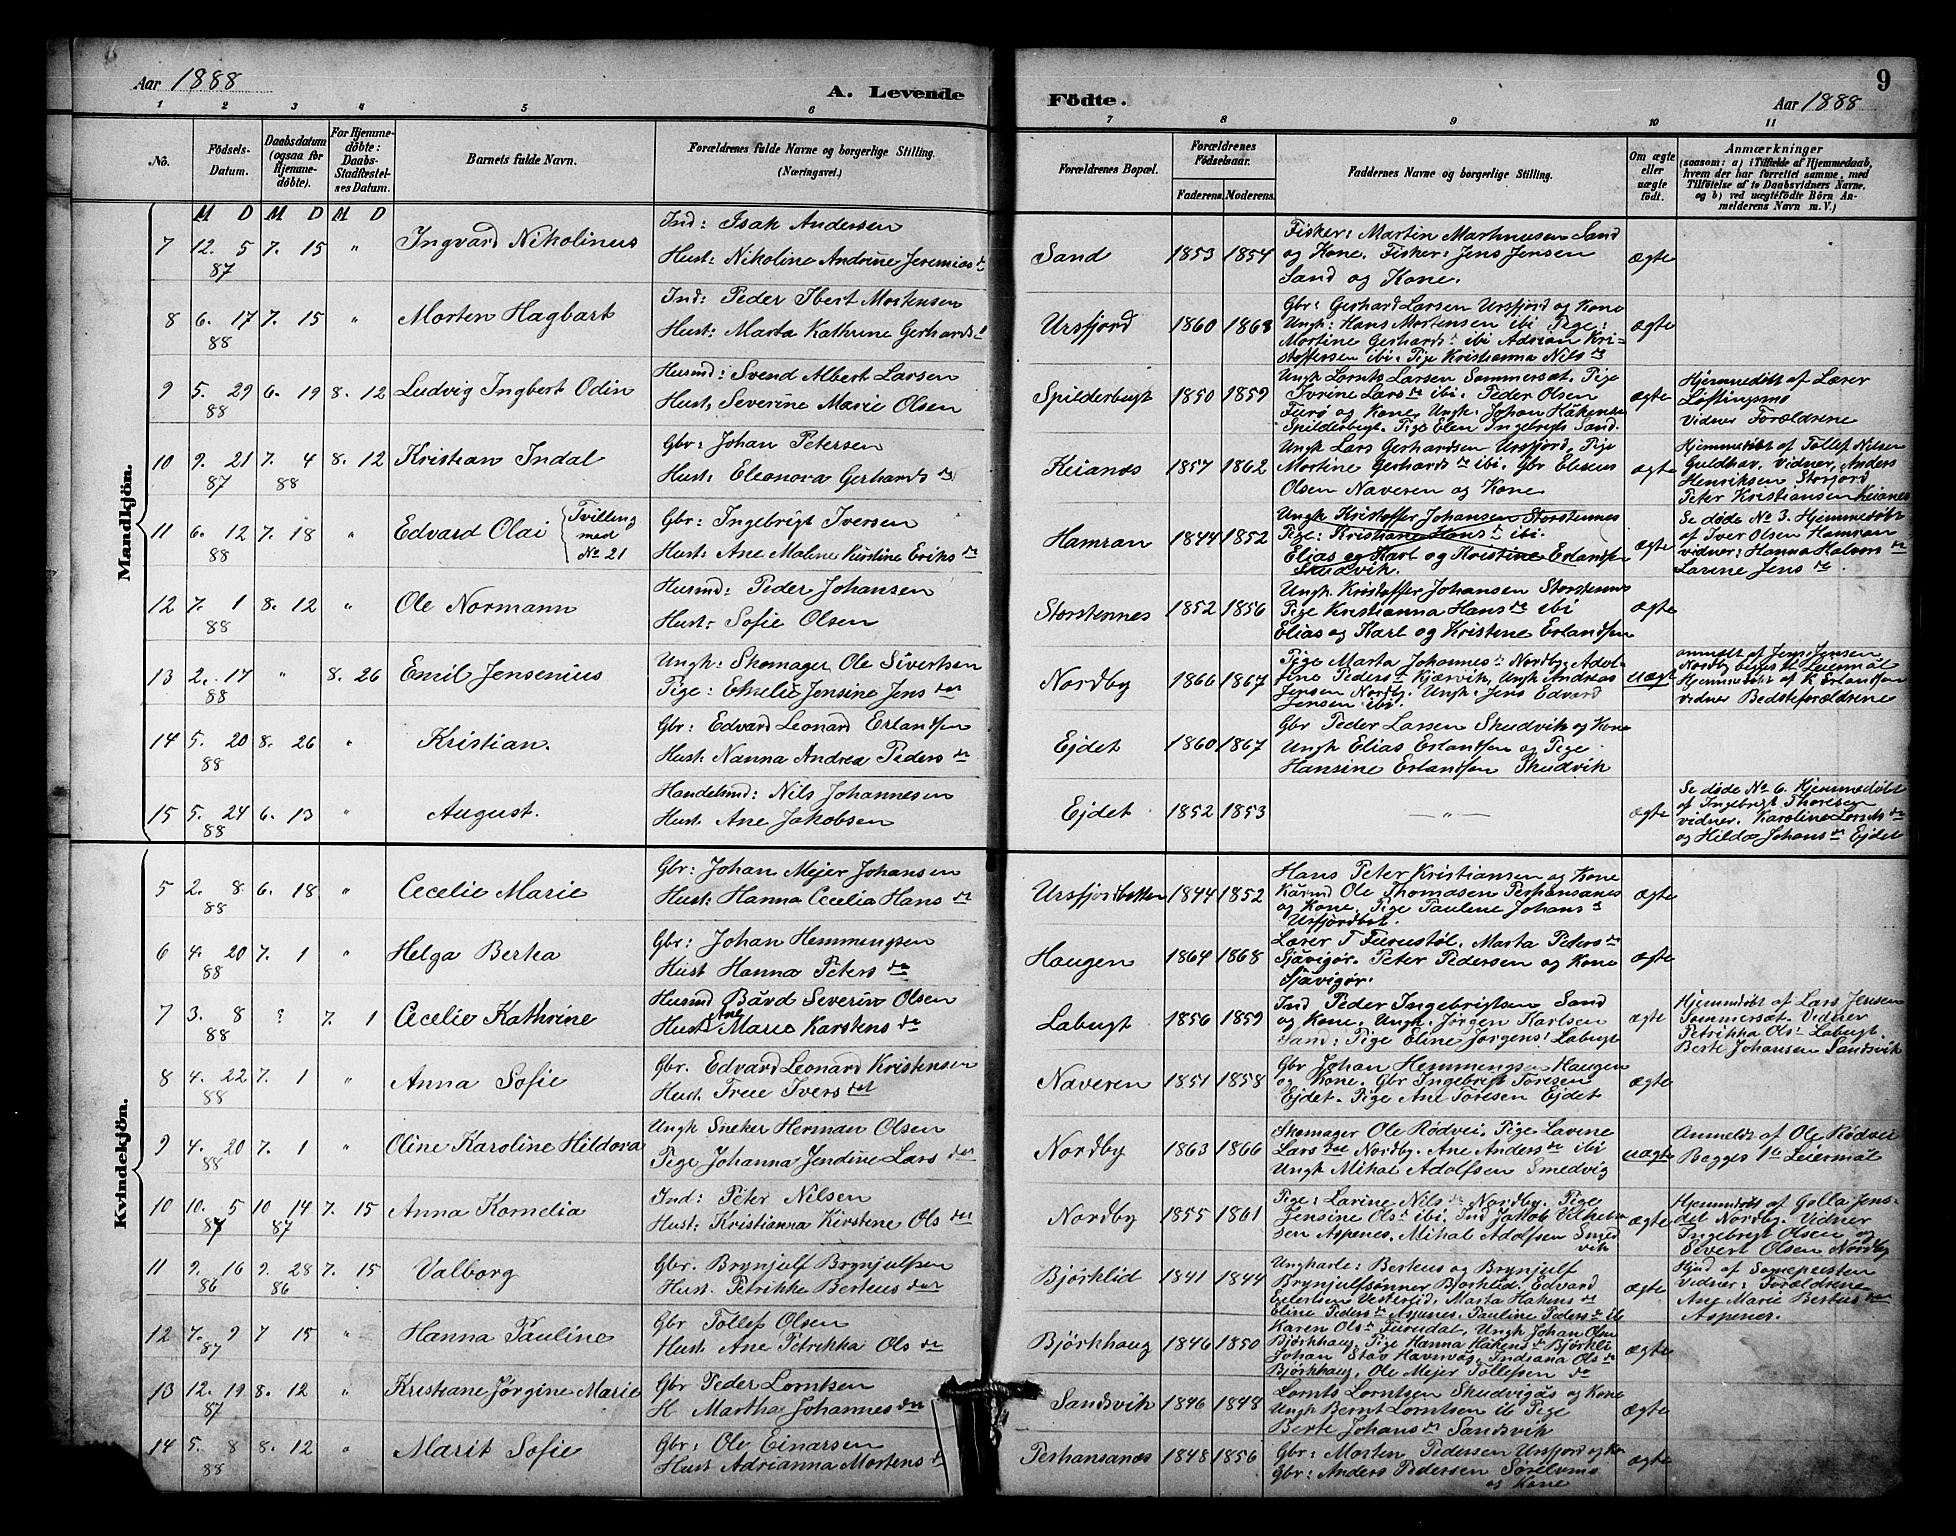 Aar 1888
A. Levende Födte.
9
Aar 1888
1 2 3 4 5 6 7 8 9 10 11
No.
Födsels-Datum.
Daabsdatum (ogsaa for Hjemmedöbte).
For Hjemmedöbte: Daabs-Stadfæstelses Datum.
Barnets fulde Navn.
Forældrenes fulde Navne og borgerlige Stilling.
(Næringsvei.)
Forældrenes Bopæl.
Forældrenes Födselsaar.
Faderens. Moderens.
Faddernes Navne og borgerlige Stilling.
Om ægte eller uægte födt.
Anmærkninger
(saasom: a) i Tilfælde af Hjemmedaab, hvem der har forrettet samme, med Tilföielse af to Daabsvidners Navne, og b) ved uægtefödte Börn Anmelderens Navn m. V.)
M D M D M D
Mandkjön.
7 12. 5 87 7. 15 " Ingvard Nikolinus
Ind: Isak Andersen
Hust: Nikoline Andrine Jeremias dr
Sand 1853 1854
Fisker: Martin Martinusen Sand
og Kone. Fisker: Jens Jensen
Sand og Kone.
ægte
8 6. 17 88 7. 15 " Morten Hagbart
Ind: Peder Ibert Mortensen
Hust: Marta Kathrine Gerhards d
Ursfjord 1860 1868
Gbr: Gerhard Larsen Ursfjord og Kone
Ungk: Hans Mortensen ibi Pige:
Mortine Gerhards dr ibi Adrian Kri-
stoffersen ibi. Pige Kristianna Nils dr
ægte
9 5. 29 88 6. 19 8. 12 Ludvig Ingbert Odin
Husmd: Svend Albert Larsen
Hust, Severine Marie Olsen
Spilderbugt 1850 1859
Ungk Lornts Larsen Sommersæt. Pige
Ivrine Lars dr ibi. Peder Olsen
Furø og Kone. Ungk: Johan Håkensen
Spilderbugt. Pige Elen Ingebrigts Sand.
ægte
Hjemmedöbt af Lærer
Løftingsmo
Vidner Forældrene
10 9. 21 87 7. 4 88 8. 12 Kristian Indal
Gbr: Johan Petersen
Hust: Eleonora Gerhards dr
Keianæs 1857 1862
Ungk Lars Gerhardsen Ursfjord, Pige
Mortine Gerhards dr ibi. Gbr Eliseus
Olsen Naveren og Kone
ægte
Hjemmedöbt af Tollef Nilsen
Guldhav. Vidner, Anders
Henriksen Storfjord
Peter Kristiansen Keianes
11 6. 12 88 7. 18 " Edvard Olai
Tvilling med No 21
Gbr: Ingebrigt Iversen
Hust: Ane Malene Kirstine Eriks dr
Hamran 1844 1852
Ungk Kristoffer Johansen Storstennes
Pige: Kristiane Hans dr ibi.
Elias og Karl og Kristine Erlandsen
Skudvik.
ægte
Se døde No 3. Hjemmedøbt
af Iver Olsen Hamran
vidner: Hanna Halvors dr
Larine Jens dr.
12 7. 1 88 8. 12 " Ole Normann
Husmd: Peder Johansen
Hust: Sofie Olsen
Storstennes 1852 1856
Ungk. Kristoffer Johansen Storstennes
Pige Kristianna Hans dr ibi
Elias og Karl og Kristine Erlandsen
ægte
13 2. 17 88 " 8. 26 Emil Jensenius
Ungk: Skomager Ole Sivertsen
Pige: Emelie Jensine Jens dat
Nordby 1866 1867
Pige Marta Johannes dr Nordby. Adol-
fine Peders dr Kjærvik, Ungk Andreas
Jensen Nordby. Ungk: Jens Edvard
Jensen ibi
uægte
anmeldt af Jens Jensen
Nordby begges 1t Leiermål
Hjemmedöbt af K Erlandsen
vidner Bedsteforældrene
14 5. 20 88 8. 26 " Kristian.
Gbr: Edvard Leonard Erlandsen
Hust: Nanna Andrea Peders dr
Ejdet 1860 1867
Gbr Peder Larsen Skudvik og Kone
Ungk Elias Erlandsen og Pige
Hansine Erlandsen Skudvik
15 5. 24 88 6. 13 " August.
Handelsmd: Nils Johannesen
Hust. Ane Jakobsen
Ejdet 1852 1853
— " —
ægte
Se døde No 6. Hjemmedøbt
af Ingebrigt Thoresen
vidner. Karoline Lornts dr
og Hilda Johans dr Ejdet
Kvindekjön.
5 2. 8 88 6. 18 " Cecelie Marie
Gbr: Johan Mejer Johansen
Hust: Hanna Cecelia Hans dr
Ursfjordbotten 1844 1852
Hans Peter Kristiansen og Kone
Kårmd Ole Thomasen Perhansanes
og Kone. Pige Pauline Johans dr
Ursfjordbot.
ægte
6 4. 20 88 7. 1 " Helga Berka
Gbr: Johan Hemmingsen
Hust Hanna Peters dr
Haugen 1864 1868
Lærer T Furustøl. Marta Peters dr
Sjåvigør. Peter Pedersen og Kone
Sjåvigør.
ægte
7 3. 8 88 ? 7. 1 Cecelie Kathrine
Husmd Bård Severin Olsen
Hust Ane Marie Karstens dr
Labugt 1856 1859
Ind Peder Ingebrigtsen Sand
og Kone. Ungk. Jørgen Karlsen
Sand: Pige Eline Jørgens d Labugt
ægte
Hjemmdöbt af Lars Jensen
Sommersæt. Vidner
Petrikka Ols d Labugt.
Berte Johansen Sandsvik
8 4. 22 88 7. 1 " Anna Sofie
Gbr. Edvard Leonard Kristensen
Hust. Trine Ivers dat
Naveren 1851 1858
Gbr Johan Hemmingsen Haugen
og Kone. Gbr Ingebrigt Toresen
Ejdet. Pige Ane Toresen Ejdet
ægte
9 4. 20 88 7. 1 " Oline Karoline Hildora
Ungk Sneker Herman Olsen
Pige Johanna Jendine Lars dat
Nordby 1863 1866
Skomager Ole Rødvei, Pige Lavine
Lars dat Nordby. Ane Anders dr ibi
Ungk Mikal Adolfsen Smedvig
uægte
Anmeldt af Ole Rødvei
Begges 1te Leiermål
10 10. 5 87 10 14 87 7. 15 Anna Kornelia
Ind: Peter Nilsen
Hust: Kristianna Kirstene Ols dat
Nordby 1855 1861
Pige: Larine Nils dr Nordby. Pige
Jensine Ols d ibi. Ind Jakob Vilhelm-
sen Aspenes. Mikal Adolfsen Smed
vik
ægte
Hjemmdöbt af Golla Jens-
dat Nordby. Vidner
Ingebrigt Olsen og
Sivert Olsen Nordby
11 9. 16 86 9. 28 86 7. 15 Valborg
Gbr. Brynjulf Brynjulfsen
Hust. Petrikke Berteus dat
Bjørklid 1841 1844
Ungkarle: Berteus og Brynjulf
Brynjulfsønner Bjørklid. Edvard
Eilertsen Vesterlid. Marta Håkens dr
Eline Peders dr Aspanes. Pauline Peders dr ib
ægte
Vidner: Forældrene
Ane Marie Berteus dat
Aspenes.
12 7. 9 87 7 15 " Hanna Pauline
Gbr Tollef Olsen
Hust. Ane Petrikka Ols dr
Bjørkhaug 1846 1850
Karen Ols dr Furudal, Ungk Johan Olsen
Bjørkhaug. Pige Hanna Håkens dr Bjørkli
Johan Stav Havnvåg. Indiana Ols dr
Bjørkhaug, Ole Mejer Tollefsen do
ægte
13 12. 19 87 8. 12 " Kristiane Jørgine Marie
Gbr Peder Lorntsen
H Martha Johannes dat
Sandsvik 1846 1848
Lornts Lorntsen Skudvigås og Kone
Ungk Bernt Lorntsen ib Pige
Berte Johans dr Sandsvik
ægte
14 5. 8 88 8. 12 " Marit Sofie
Gbr: Ole Einarsen
Hust Adrianna Mortens dr
Perhansanæs 1848 1856
Gbr: Morten Pedersen Ursfjord og Ko
Gbr: Anders Pedersen Sørelvmo
og Kone
ægte